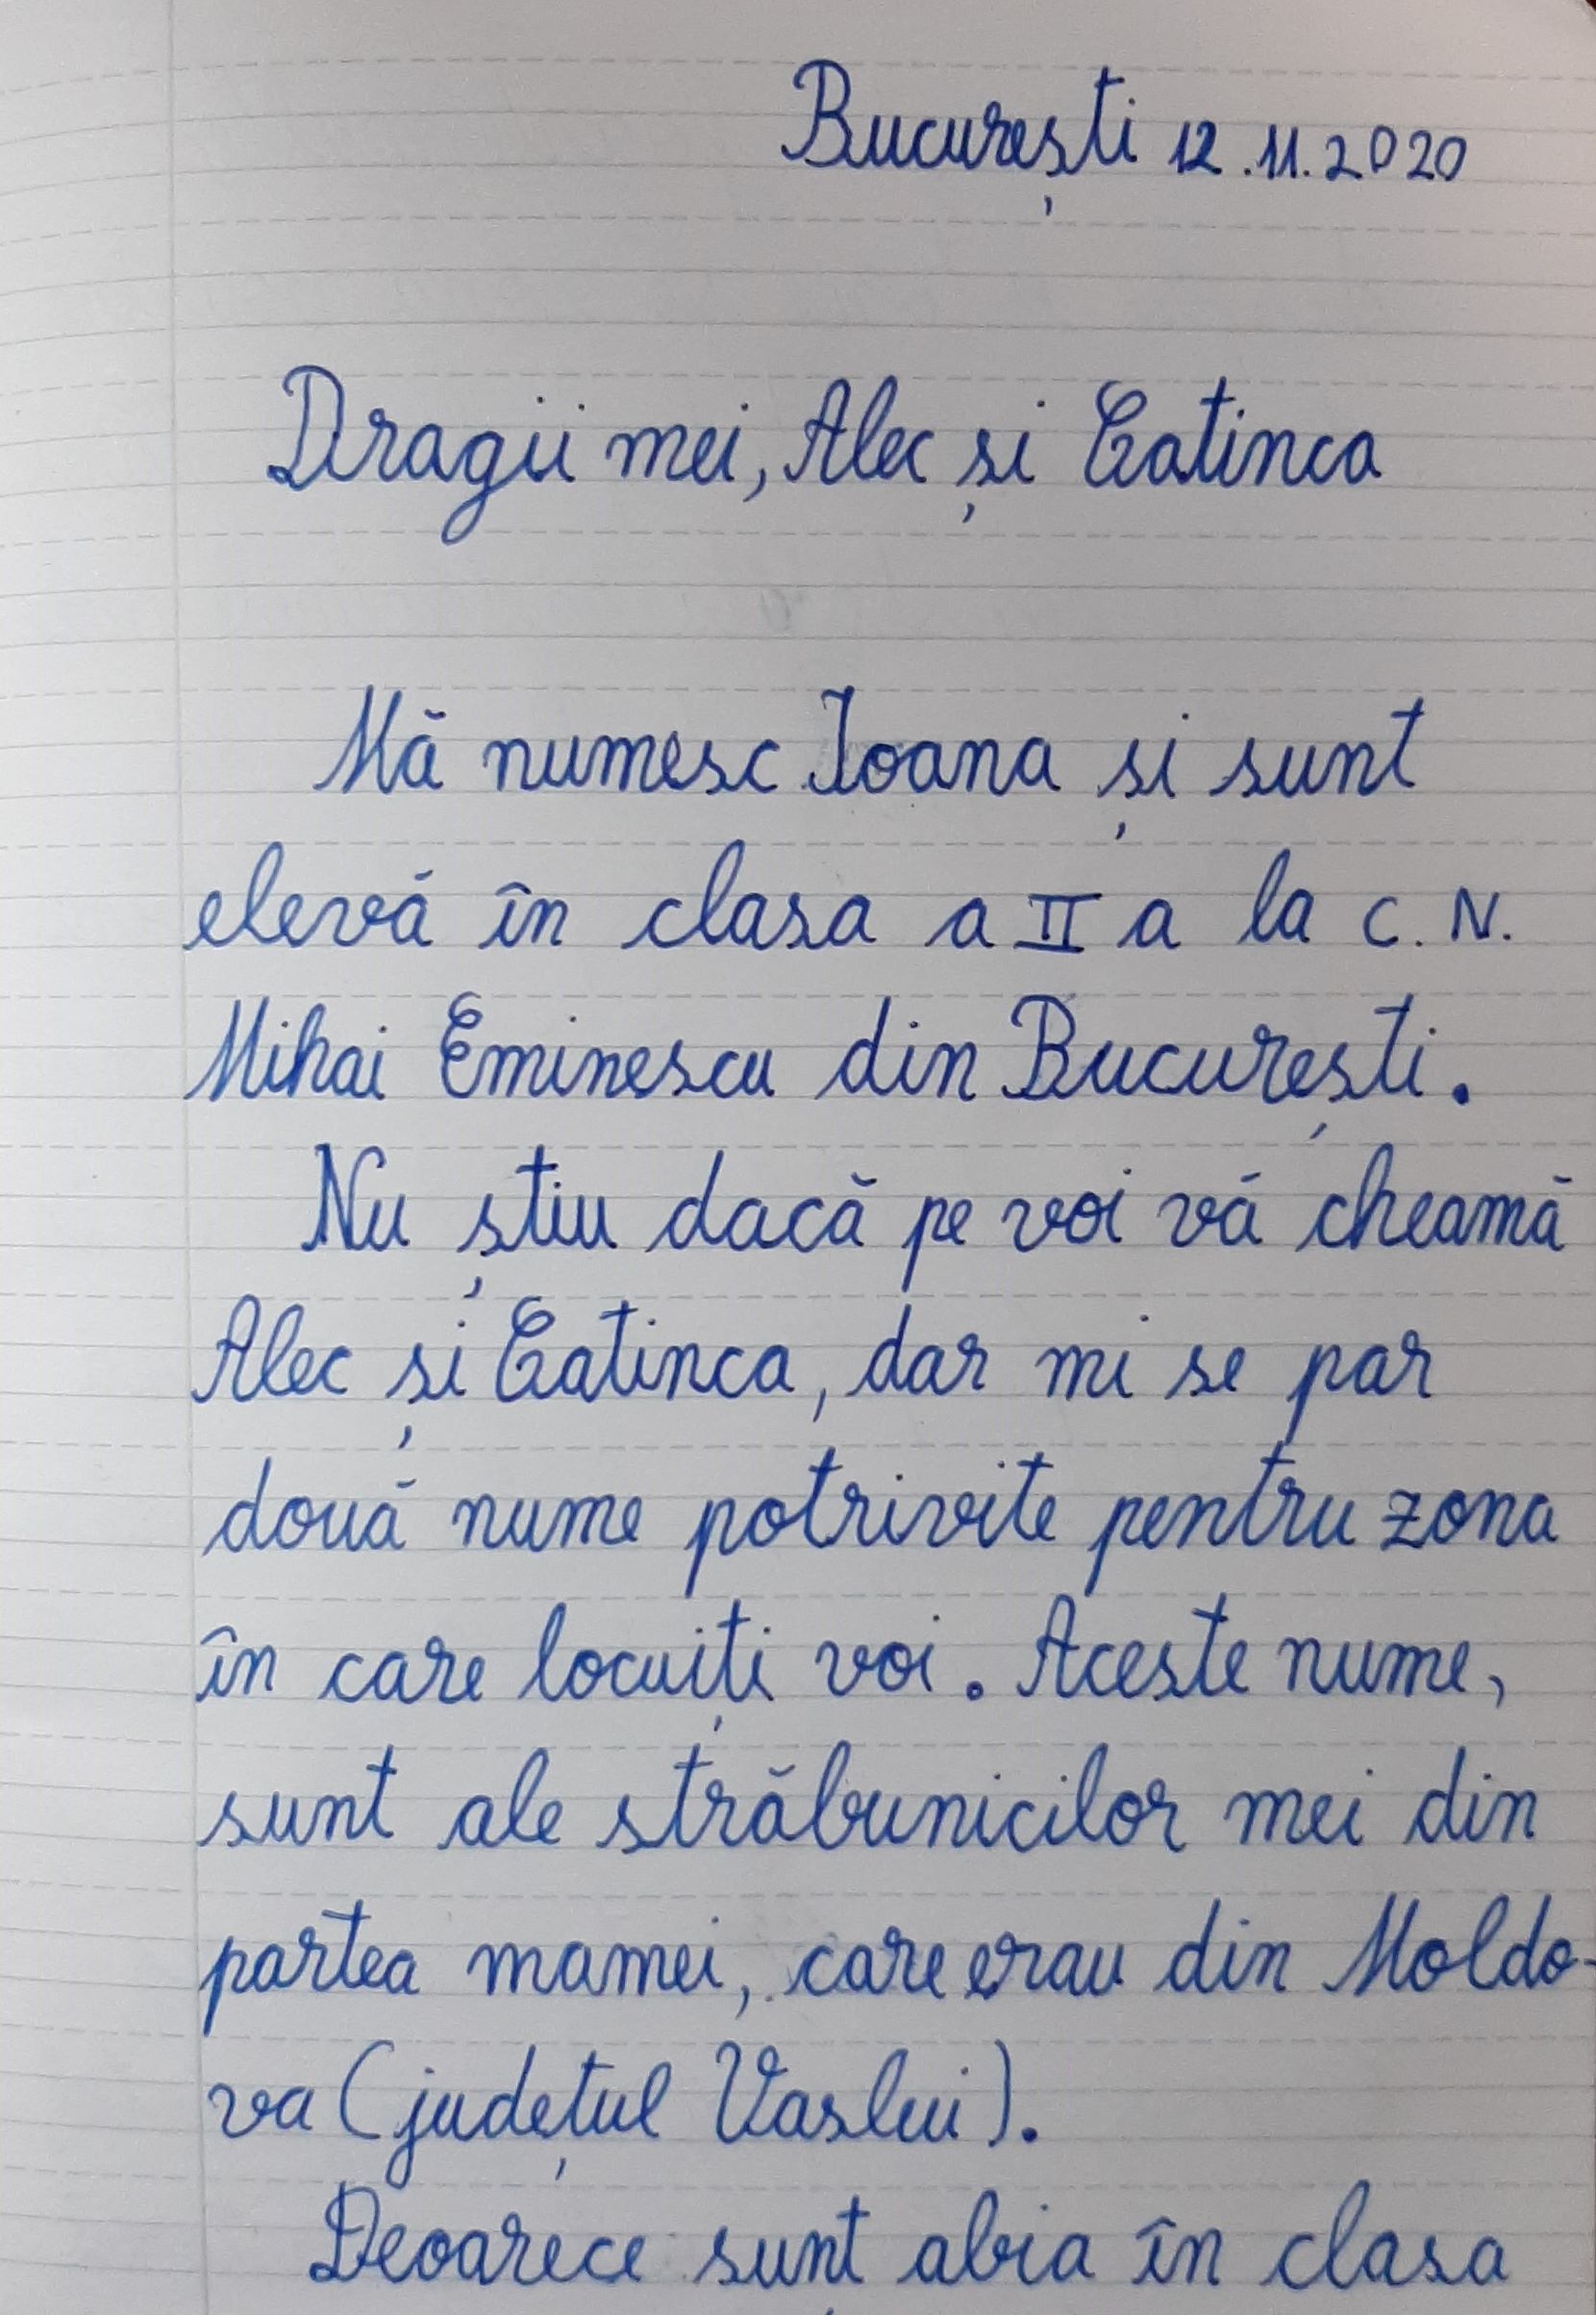 București 12.11.2020
Dragii mei, Alec și Catinca
Mă numesc Ioana și sunt
elevă în clasa a II a la C. N.
Mihai Eminescu din București.
Nu știu dacă pe voi vă cheamă
Alec și Catinca, dar mi se par
două nume potrivite pentru zona
în care locuiți voi. Aceste nume,
sunt ale străbunicilor mei din
partea mamei, care erau din Moldo-
va (județul Vaslui).
Deoarece sunt abia în clasa